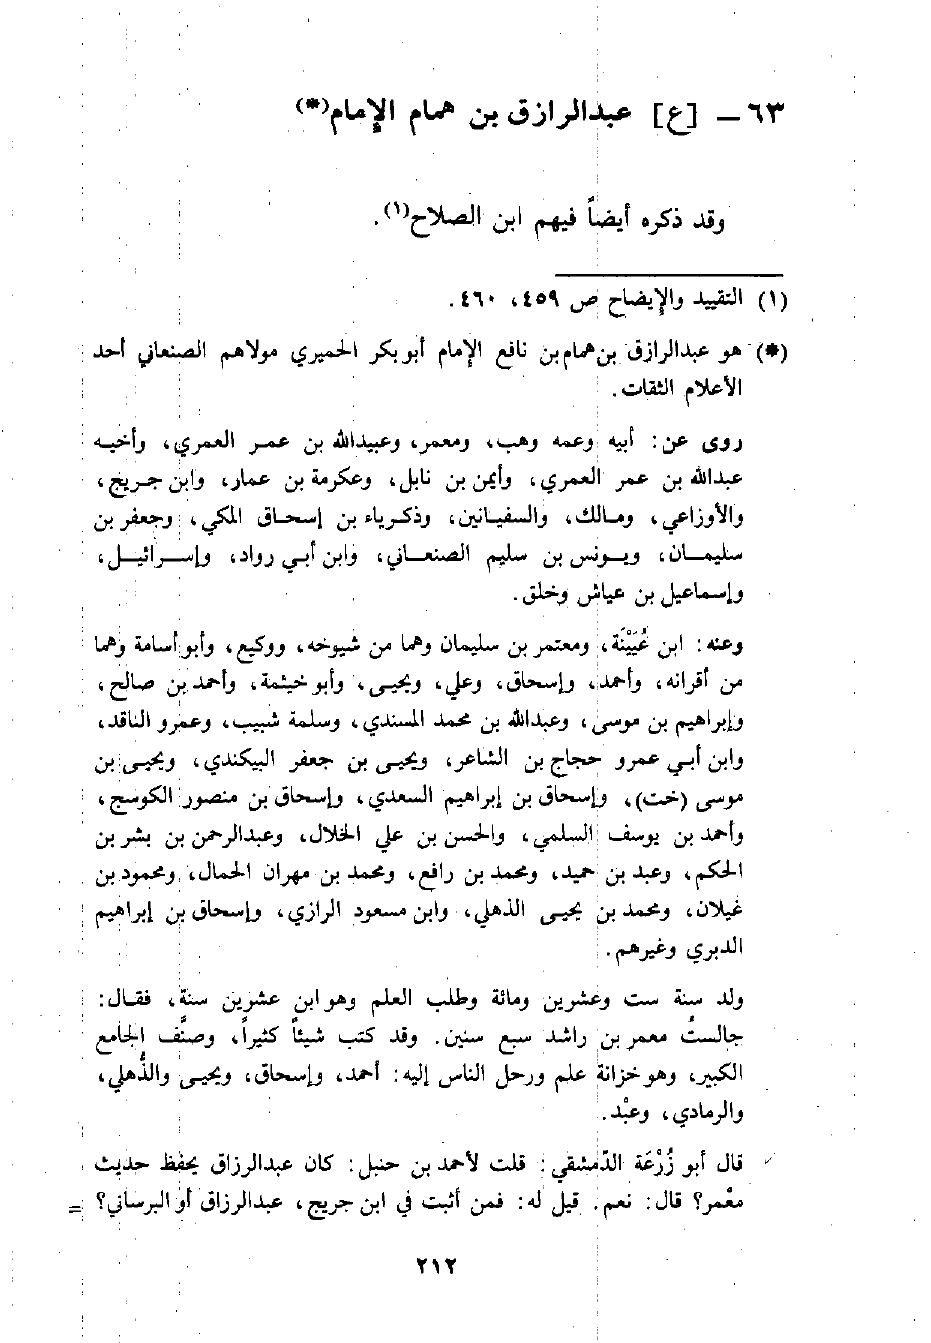 ٦٣ – [ع] عبدالرازق بن همام الإمام(*)
وقد ذكره أيضاً فيهم ابن الصلاح(١).
(١) التقييد والإيضاح ص ٤٥٩، ٤٦٠.
(*) هو عبدالرازق بن همام بن نافع الإمام أبو بكر الحميري مولاهم الصنعاني أحد
الأعلام الثقات.
روى عن: أبيه وعمه وهب، ومعمر، وعبيدالله بن عمر العمري، وأخيه
عبدالله بن عمر العمري، وأيمن بن نابل، وعكرمة بن عمار، وابن جريج،
والأوزاعي، ومالك، والسفيانين، وذكرياء بن إسحاق المكي، وجعفر بن
سليمان، ويونس بن سليم الصنعاني، وابن أبي رواد، وإسرائيل،
وإسماعيل بن عياش وخلق.
وعنه: ابن عُيَيْنَة، ومعتمر بن سليمان وهما من شيوخه، ووكيع، وأبو أسامة وهما
من أقرانه، وأحمد، وإسحاق، وعلي، ويحيى، وأبو خيثمة، وأحمد بن صالح،
وإبراهيم بن موسى، وعبدالله بن محمد المسندي، وسلمة شبيب، وعمرو الناقد،
وابن أبي عمرو حجاج بن الشاعر، ويحيى بن جعفر البيكندي، ويحيى بن
موسى (خت)، وإسحاق بن إبراهيم السعدي، وإسحاق بن منصور الكوسج،
وأحمد بن يوسف السلمي، والحسن بن علي الخلال، وعبدالرحمن بن بشر بن
الحكم، وعبد بن حميد، ومحمد بن رافع، ومحمد بن مهران الحمال، ومحمود بن
غيلان، ومحمد بن يحيى الذهلي، وابن مسعود الرازي، وإسحاق بن إبراهيم
الدبري وغيرهم.
ولد سنة ست وعشرين ومائة وطلب العلم وهو ابن عشرين سنة، فقال:
جالستُ معمر بن راشد سبع سنين. وقد كتب شيئاً كثيراً، وصنَّف الجامع
الكبير، وهو خزانة علم ورحل الناس إليه: أحمد، وإسحاق، ويحيى والذُّهلي،
والرمادي، وعبْد.
قال أبو زُرْعَة الدّمشقي: قلت لأحمد بن حنبل: كان عبدالرزاق يحفظ حديث
معْمر؟ قال: نعم. قيل له: فمن أثبت في ابن جريج، عبدالرزاق أو البرساني؟ =
٢١٢